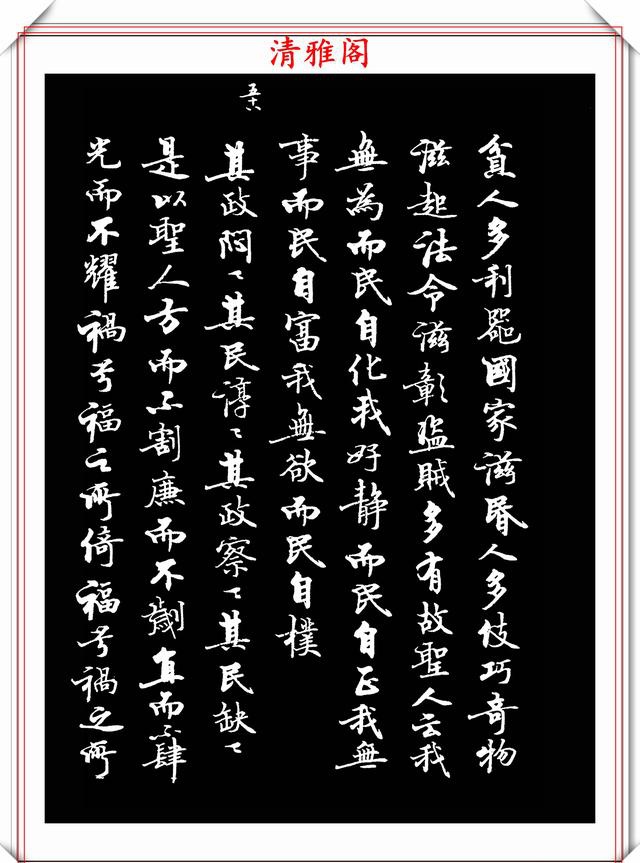 清雅阁
貧人多利器國家滋昬人多伎巧奇物
滋起法令滋彰盜賊多有故聖人云我
無為而民自化我好静而民自正我無
事而民自富我無欲而民自樸
五十八
其政悶〻其民淳〻其政察〻其民缺〻
是以聖人方而不割廉而不劌直而不肆
光而不耀禍兮福之所倚福兮禍之所